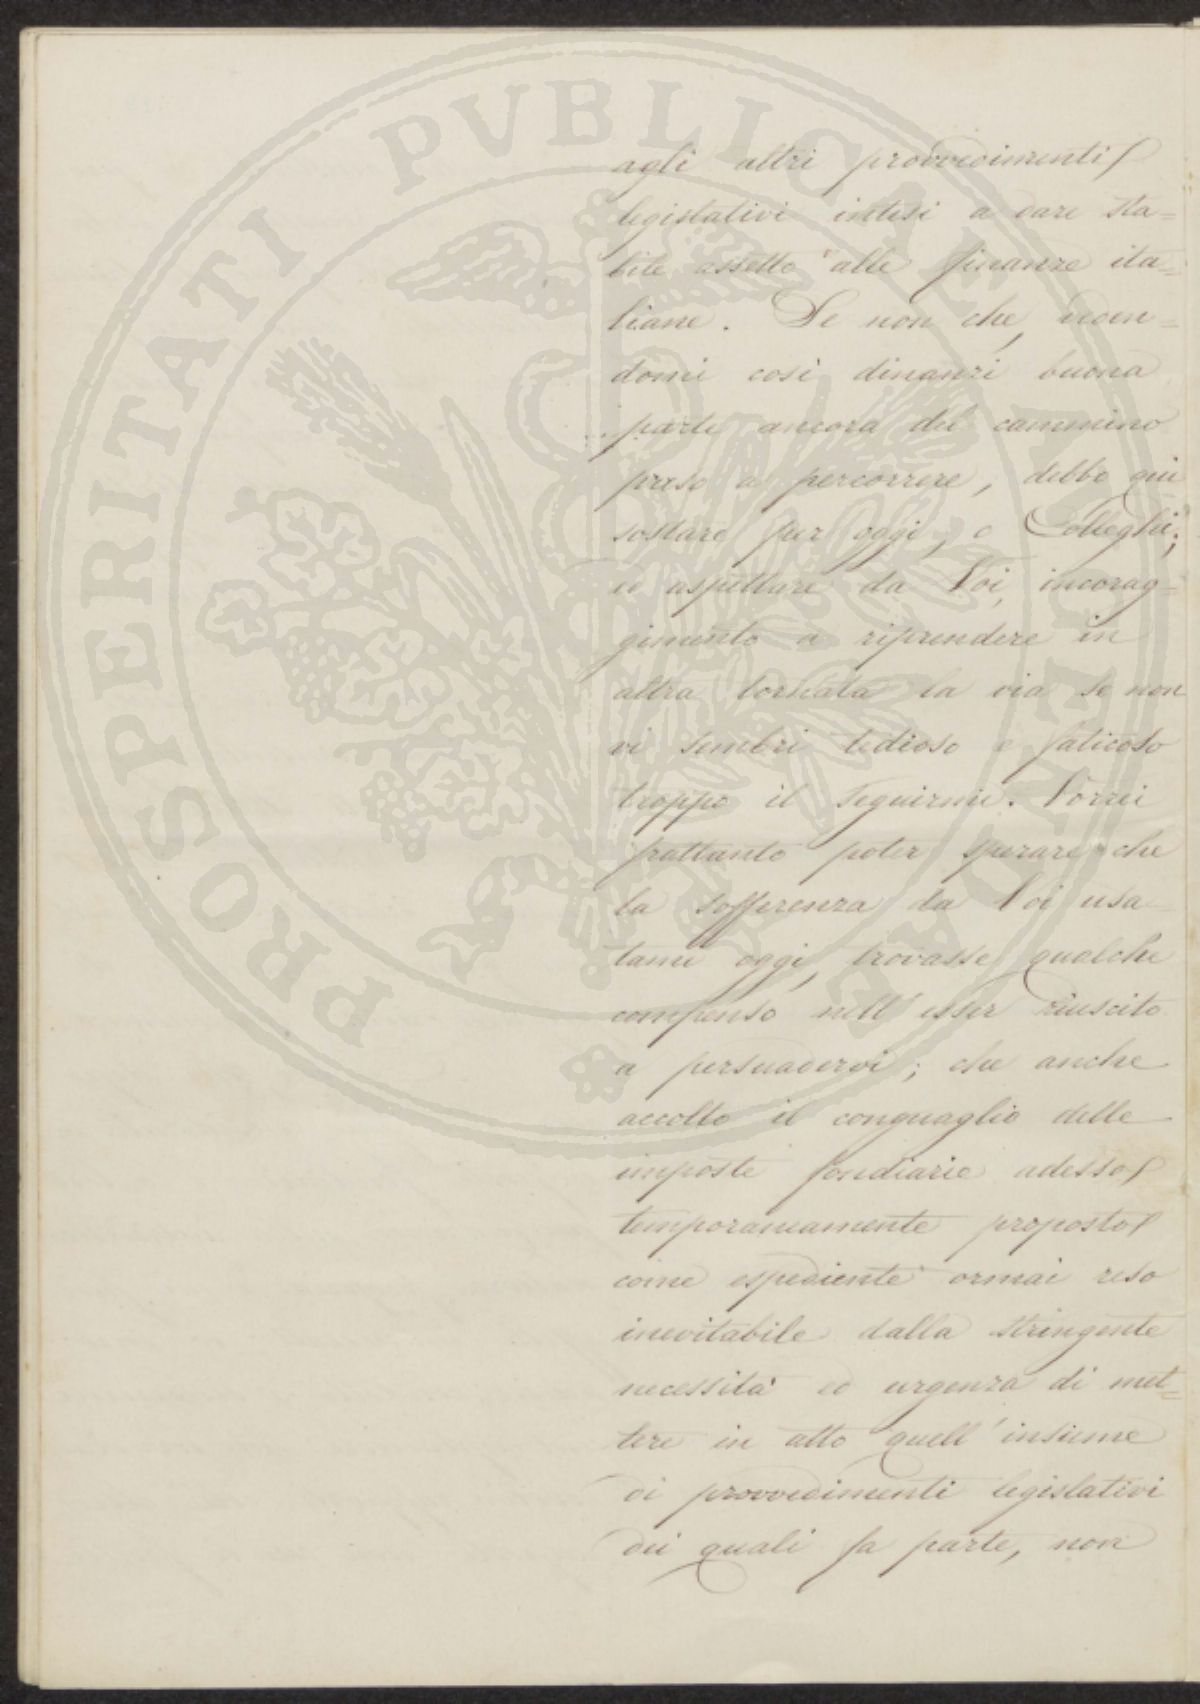 PROSPERITATI PUBLICAE AUGENDAE
agli altri provvedimenti
legislativi intesi a dare sta=
bile assetto alle finanze ita=
liane. Se non che, veden=
domi così dinanzi buona
parte ancora del cammino
preso a percorrere, debbo qui
sostare per oggi, o Colleghi;
ed aspettare da Voi, incorag-
gimento a riprendere in
altra tornata la via se non
vi sembri tedioso e faticoso
troppo il seguirmi. Vorrei
frattanto poter sperare che
la sofferenza da Voi usa-
tami oggi, trovasse qualche
compenso nell'esser riuscito
a persuadervi; che anche
accolto il conguaglio delle
imposte fondiarie adesso
temporaneamente proposto
come espediente ormai reso
inevitabile dalla stringente
necessità ed urgenza di met=
tere in atto quell'insieme
di provvedimenti legislativi
dei quali fa parte, non